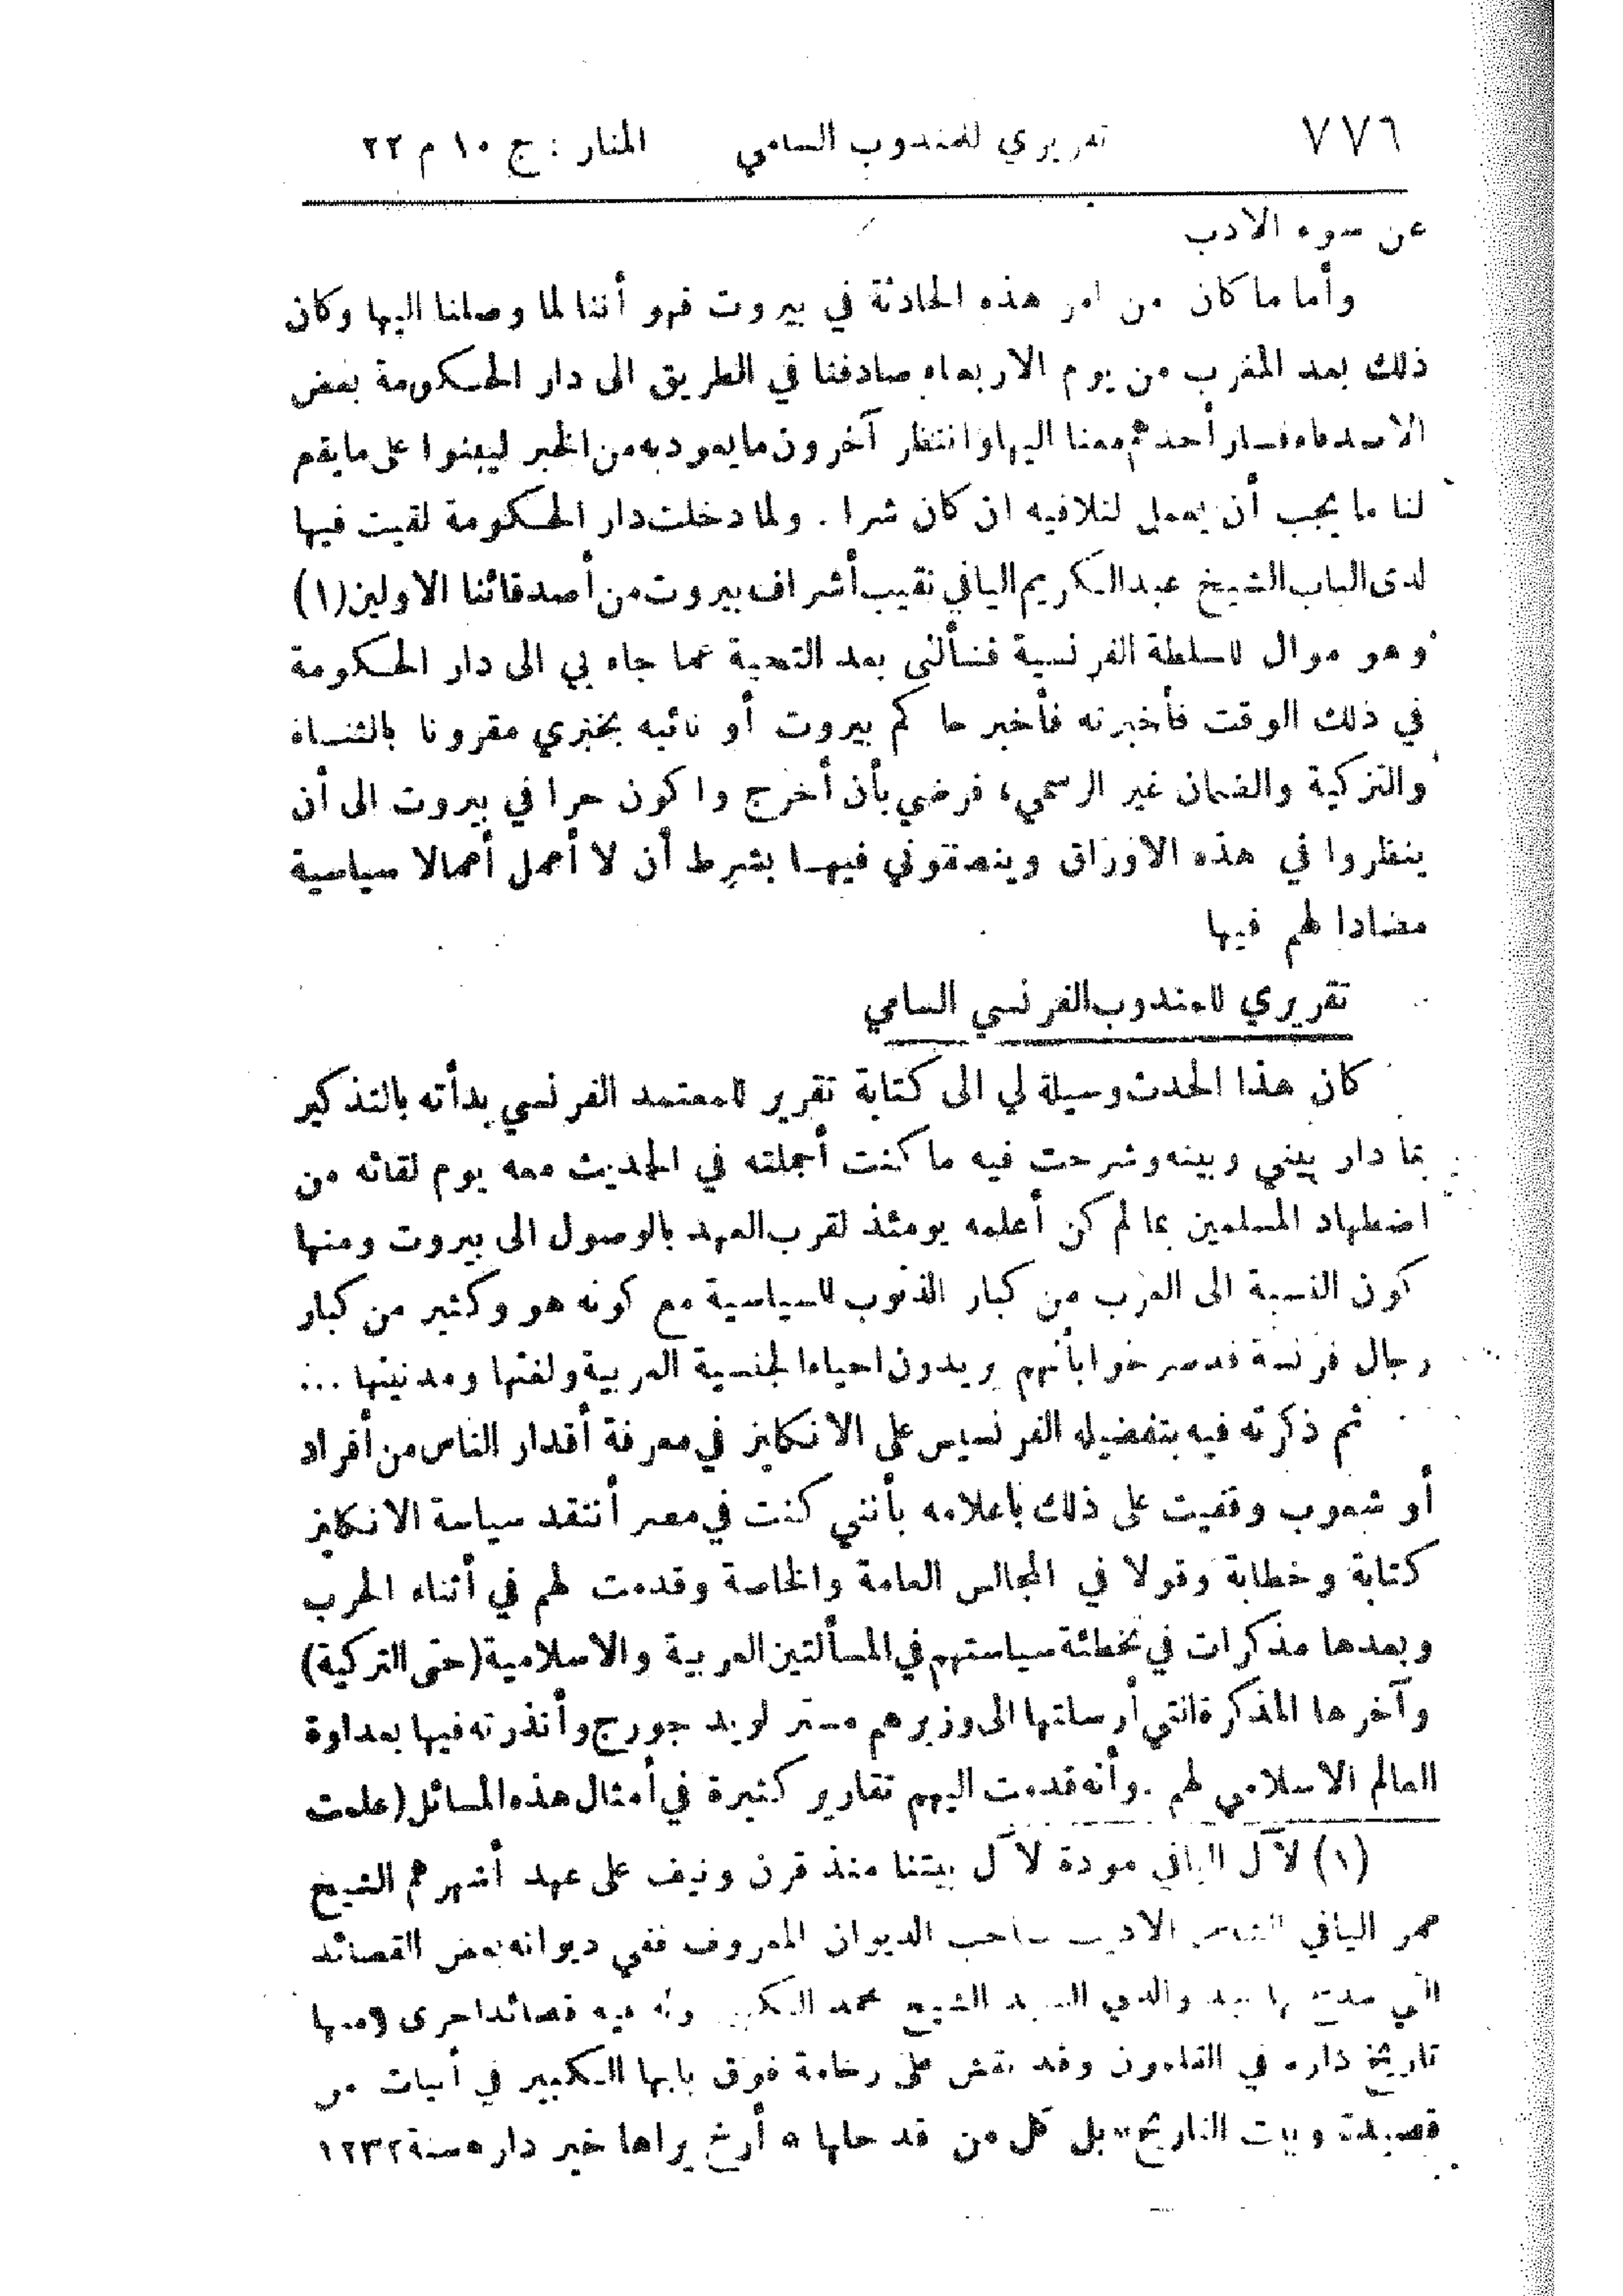 ٧٧٦ تقريري للمندوب السامي المنار : ج ١٠ م ٢٢
عن سوء الادب
وأما ما كان من امر هذه الحادثة في بيروت فهو أننا لما وصلنا اليها وكان
ذلك بعد المغرب من يوم الاربعاء صادفنا في الطريق الى دار الحكومة بعض
الاصدقاء فسار أحدهم معنا اليها وانتظر آخرون ما يعود به من الخبر ليبنوا على ما يقع
لنا ما يجب أن يعمل لتلافيه ان كان شرا . ولما دخلت دار الحكومة لقيت فيها
لدى الباب الشيخ عبد الكريم اليافي نقيب أشراف بيروت من أصدقائنا الاولين (١)
وهو موال للسلطة الفرنسية فسألني بعد التحية عما جاء بي الى دار الحكومة
في ذلك الوقت فأخبرته فأخبر حاكم بيروت أو نائبه بخبري مقرونا بالثناء
والتزكية والضمان غير الرسمي، فرضي بأن أخرج واكون حرا في بيروت الى أن
ينظروا في هذه الاوراق وينصفوني فيها بشرط أن لا أعمل أعمالا سياسية
مضادا لهم فيها
تقريري للمندوب الفرنسي السامي
كان هذا الحدث وسيلة لي الى كتابة تقرير للمعتمد الفرنسي بدأته بالتذكير
بما دار بيني وبينه وشرحت فيه ما كنت أجملته في الحديث معه يوم لقائه من
اضطهاد المسلمين بما لم كن أعلمه يومئذ لقرب العهد بالوصول الى بيروت ومنها
كون النسبة الى العرب من كبار الذنوب للسياسية مع كونه هو وكثير من كبار
رجال فرنسة قد صرخوا بأنهم يريدون احياء الجنسية العربية ولغتها ومدنيتها ...
ثم ذكرته فيه بتفضيله الفرنسيس على الانكليز في معرفة أقدار الناس من أفراد
أو شعوب وقفيت على ذلك باعلامه بأنني كنت في مصر أنتقد سياسة الانكليز
كتابة وخطابة وقولا في المجالس العامة والخاصة وقدمت لهم في أثناء الحرب
وبعدها مذكرات في تخطئة سياستهم في المسألتين العربية والاسلامية (حتى التركية)
وآخرها المذكرة التي أرسلتها الى وزيرهم مستر لويد جورج وأنذرته فيها بعداوة
العالم الاسلامي لهم . وأنه قدمت اليهم تقارير كثيرة في أمثال هذه المسائل (علمت
(١) لآل اليافي مودة لآل بيتنا منذ قرن ونيف على عهد أشهرهم الشيخ
عمر اليافي الشاعر الاديب صاحب الديوان المعروف ففي ديوانه بعض القصائد
التي مدح بها والدي السيد الشيخ محمد وله فيه قصائد اخرى ومنها
تاريخ داره في القلمون وقد نقش على رخامة فوق بابها الكبير في أبيات من
قصيدة وبيت التاريخ * بل كل من قد حلها * أرخ يراها خير داره سنة ١٢٣٢